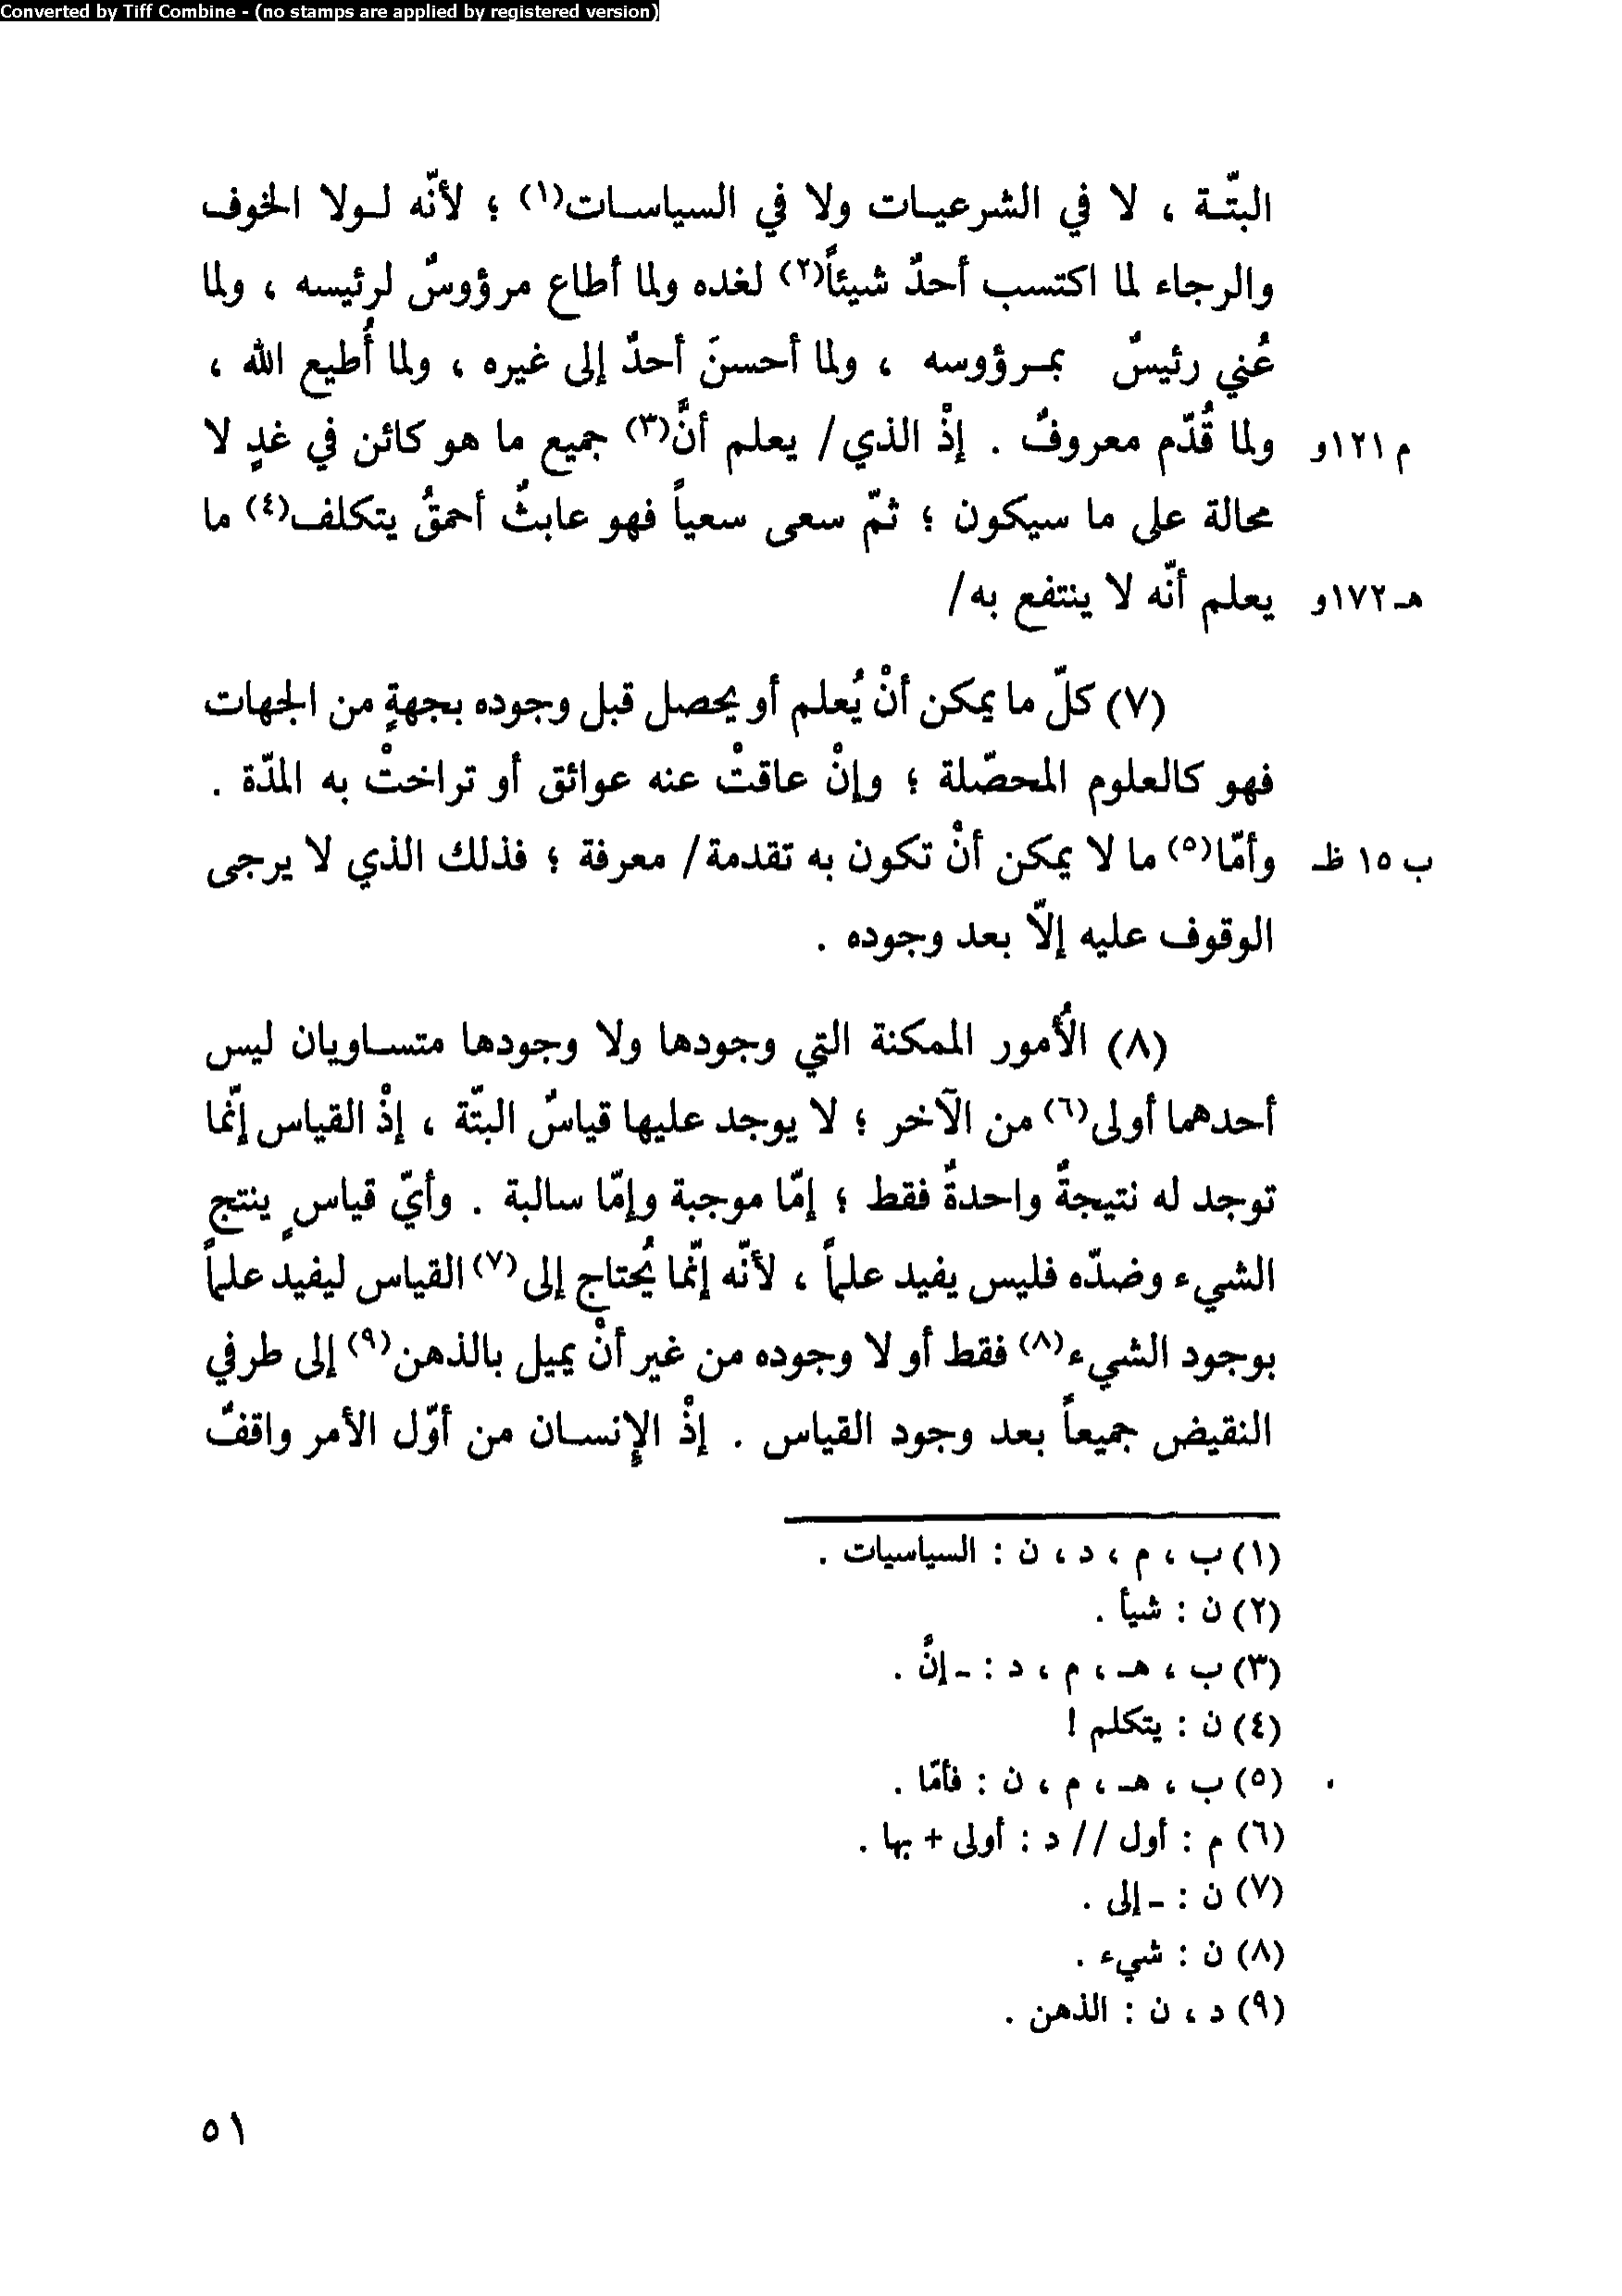 Converted by Tiff Combine - (no stamps are applied by registered version)
البتّـة ، لا في الشرعيـات ولا في السياسـات(١) ؛ لأنّه لـولا الخوف
والرجاء لما اكتسب أحدٌ شيئاً(٢) لغده ولما أطاع مرؤوسٌ لرئيسه ، ولما
عُني رئيسٌ بمـرؤوسه ، ولما أحسنَ أحدٌ إلى غيره ، ولما أُطيع الله ،
م ١٢١و ولما قُدّم معروفٌ . إذْ الذي/ يعلم أنَّ(٣) جميع ما هو كائن في غدٍ لا
محالة على ما سيكون ؛ ثمّ سعى سعياً فهو عابثٌ أحمقُ يتكلف(٤) ما
هـ ١٧٢و يعلم أنّه لا ينتفع به/
(٧) كلّ ما يمكن أنْ يُعلم أو يحصل قبل وجوده بجهةٍ من الجهات
فهو كالعلوم المحصّلة ؛ وإنْ عاقتْ عنه عوائق أو تراختْ به المدّة .
ب ١٥ ظـ وأمّا(٥) ما لا يمكن أنْ تكون به تقدمة/ معرفة ؛ فذلك الذي لا يرجى
الوقوف عليه إلاّ بعد وجوده .
(٨) الأُمور الممكنة التي وجودها ولا وجودها متسـاويان ليس
أحدهما أولى(٦) من الآخر ؛ لا يوجد عليها قياسٌ البتّة ، إذْ القياس إنّما
توجد له نتيجةٌ واحدةٌ فقط ؛ إمّا موجبة وإمّا سالبة . وأيّ قياسٍ ينتج
الشيء وضدّه فليس يفيد علماً ، لأنّه إنّما يُحتاج إلى(٧) القياس ليفيد علماً
بوجود الشيء(٨) فقط أو لا وجوده من غير أنْ يميل بالذهن(٩) إلى طرفي
النقيض جميعاً بعد وجود القياس . إذْ الإنسـان من أوّل الأمر واقفٌ
(١) ب ، م ، د ، ن : السياسيات .
(٢) ن : شيأ .
(٣) ب ، هـ ، م ، د : ـ إنَّ .
(٤) ن : يتكلم !
(٥) ب ، هـ ، م ، ن : فأمّا .
(٦) م : أول // د : أولى + بها .
(٧) ن : ـ إلى .
(٨) ن : شيء .
(٩) د ، ن : الذهن .
٥١